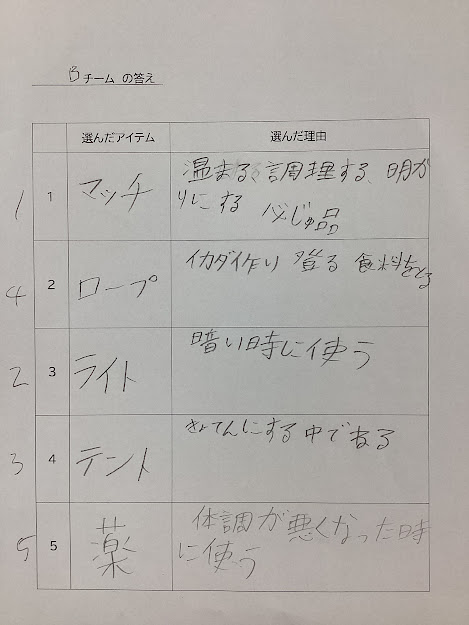 Bチーム の答え
選んだアイテム 選んだ理由
1 1 マッチ 温まる、調理する、明か
りにする 必じゅ品
4 2 ロープ イカダ作り 登る 食料をとる
2 3 ライト 暗い時に使う
3 4 テント きょてんにする 中でねる
5 5 薬 体調が悪くなった時
に使う